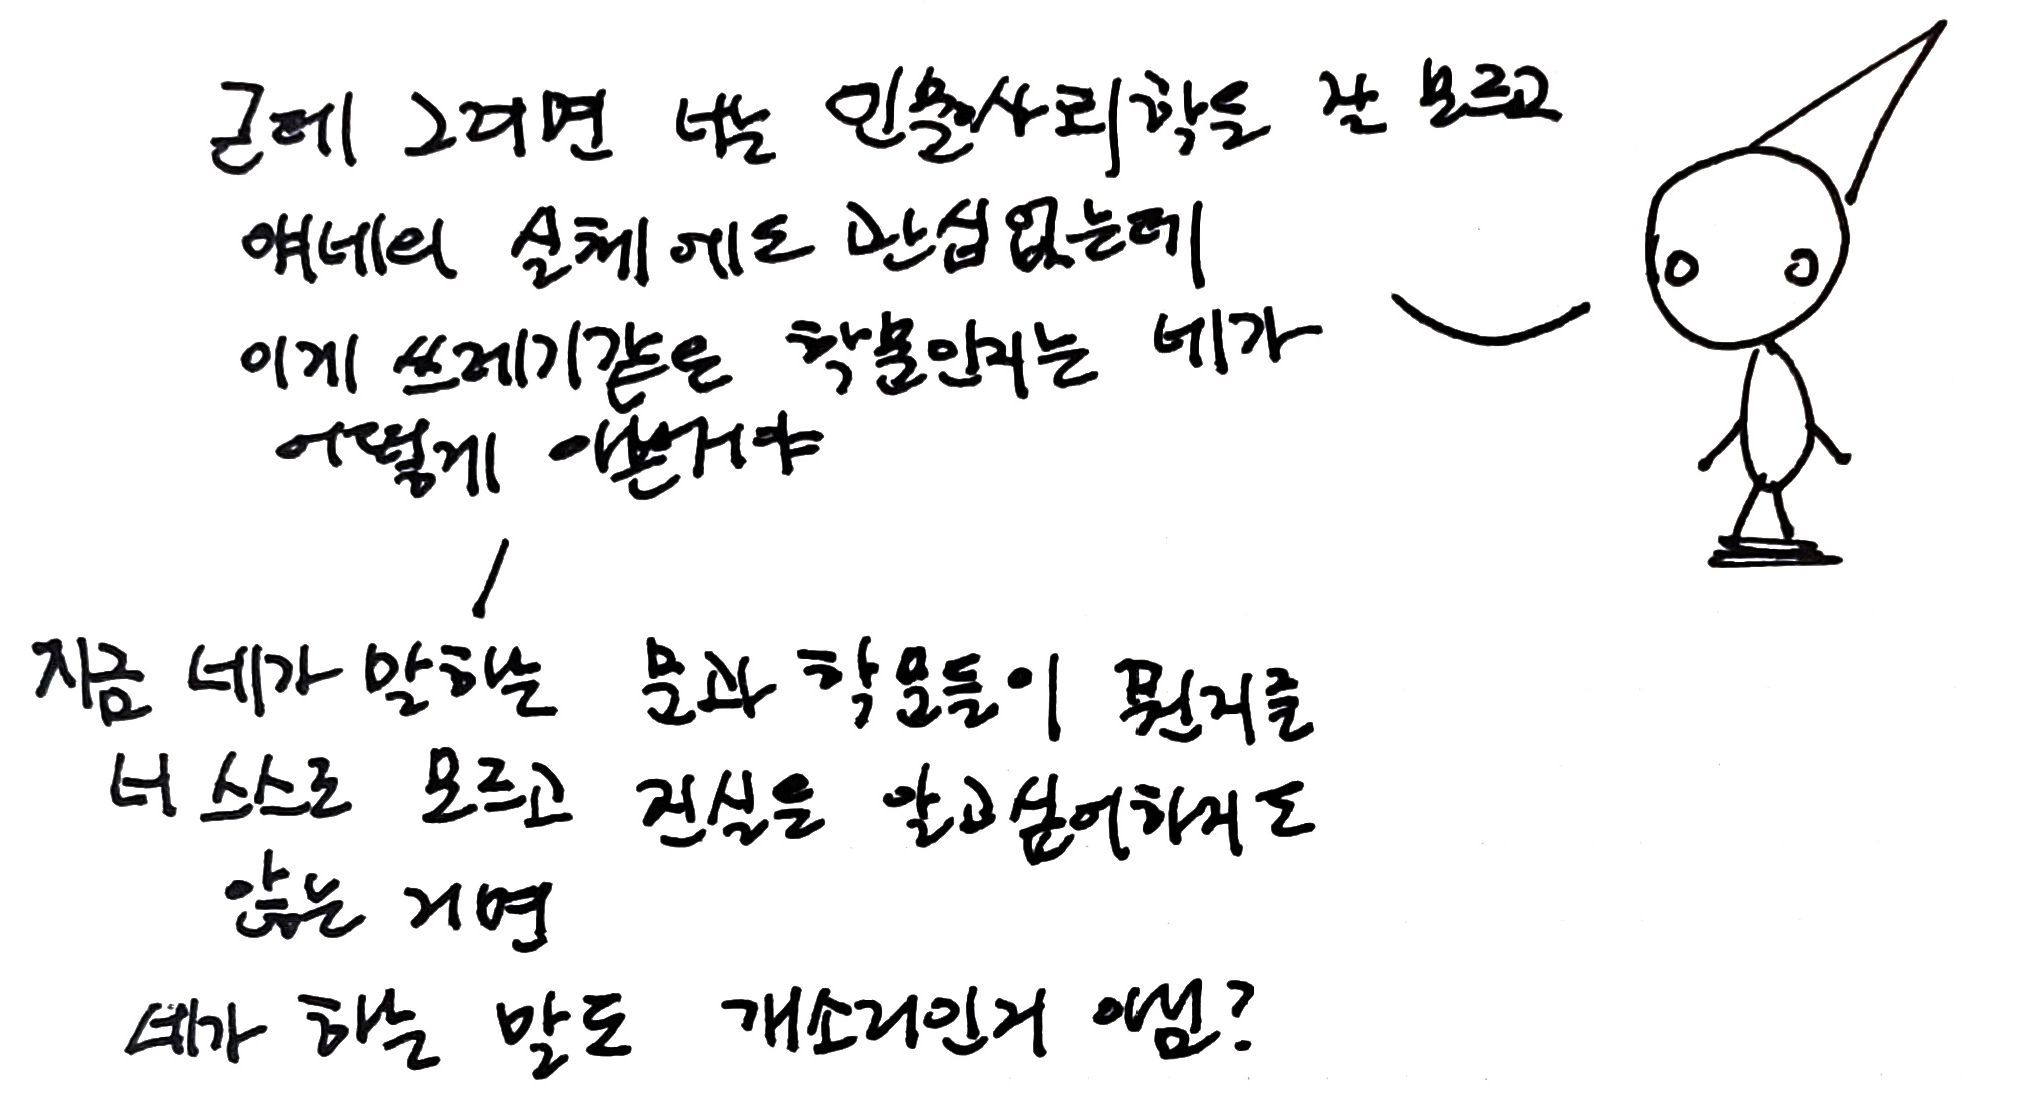 근데 그러면 너는 인물사회학을 잘 모르고
얘네의 실체에도 관심없는데
이게 쓰레기같은 학문인지는 네가
어떻게 아는거야
지금 네가 말하는 문과 학문들이 뭔지를
너 스스로 모르고 진실을 알고싶어하지도
않는 거면
네가 하는 말도 개소리인거 아님?